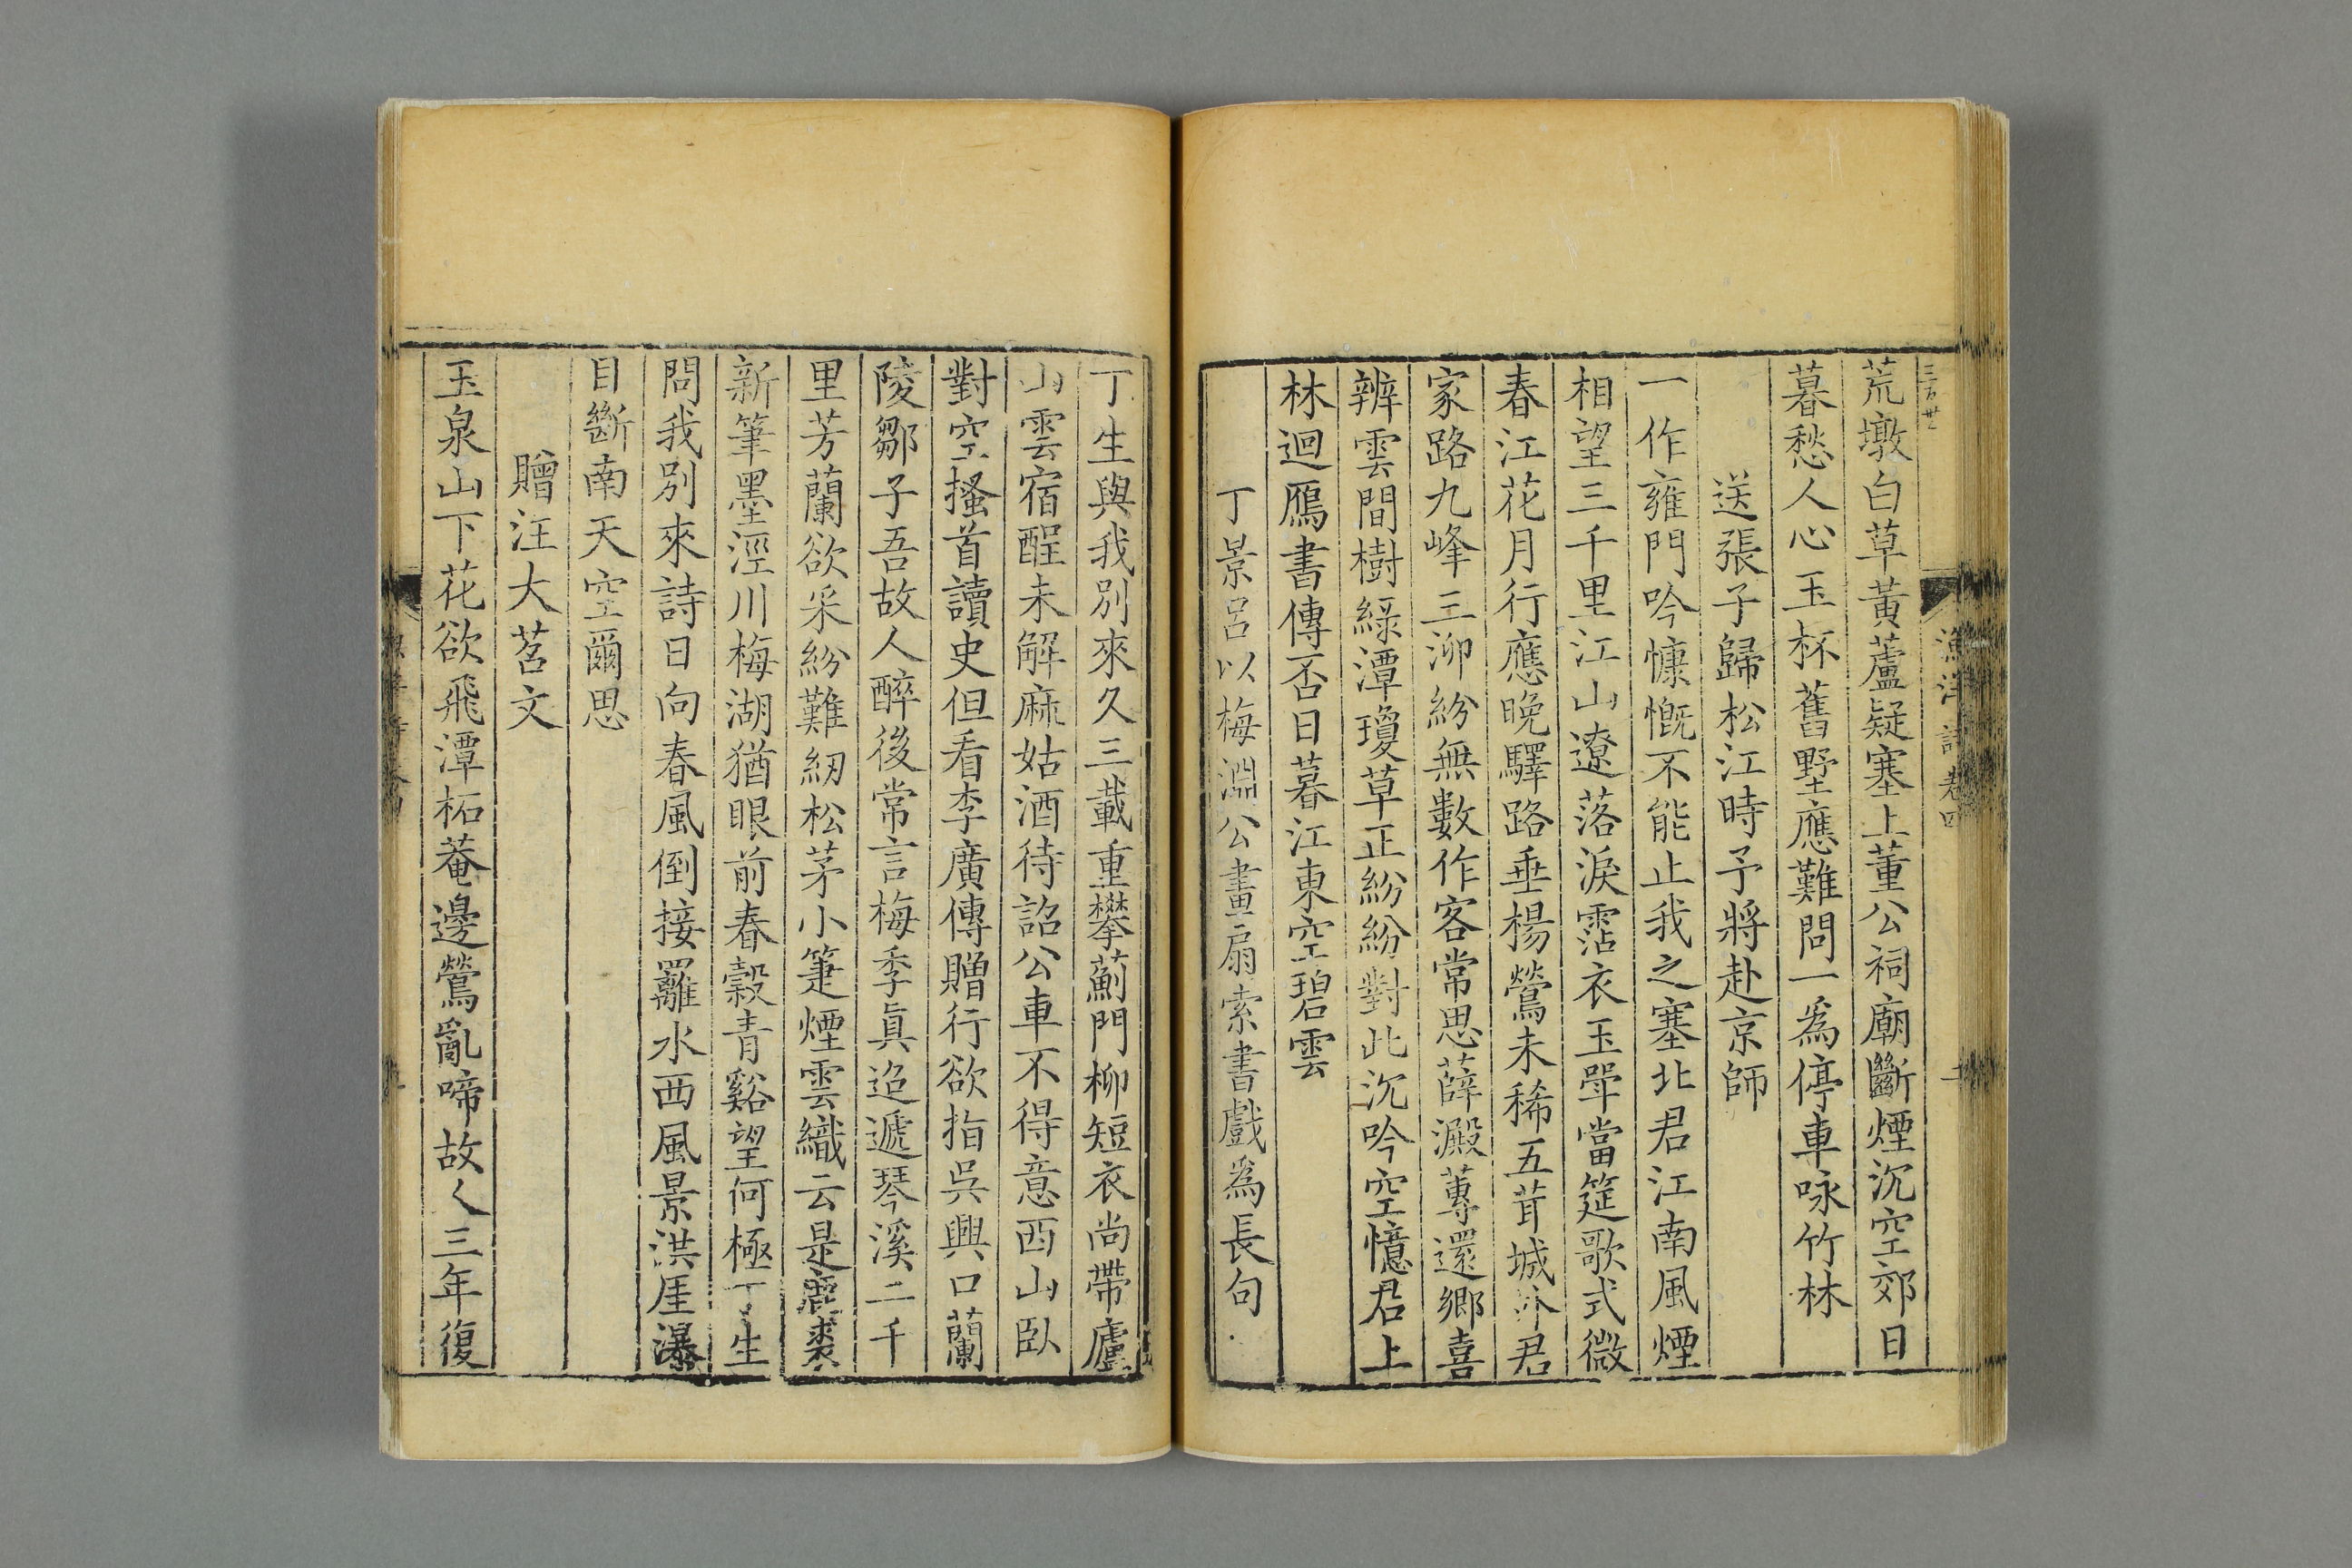 漁洋詩卷四
荒墩白草黃蘆疑塞上董公祠廟斷煙沉空郊日
暮愁人心玉杯舊墅應難問一爲停車咏竹林
送張子歸松江時予將赴京師
一作雍門吟慷慨不能止我之塞北君江南風煙
相望三千里江山遼落淚霑衣玉斝當筵歌式微
春江花月行應晚驛路垂楊鶯未稀五茸城外君
家路九峰三泖紛無數作客常思薛澱蓴還鄉喜
辨雲間樹綠潭瓊草正紛紛對此沉吟空憶君上
林迴鴈書傳否日暮江東空碧雲
丁景呂以梅淵公畫扇索書戲爲長句
丁生與我別來久三載重攀薊門柳短衣尚帶廬
山雲宿酲未解麻姑酒待詔公車不得意西山臥
對空搔首讀史但看李廣傳贈行欲指吳興口蘭
陵鄒子吾故人醉後常言梅季眞迢遞琴溪二千
里芳蘭欲采紛難紉松茅小箑煙雲織云是鹿裘
新筆墨涇川梅湖猶眼前春穀青谿望何極丁生
問我別來詩日向春風倒接䍦水西風景洪厓瀑
目斷南天空爾思
贈汪大苕文
玉泉山下花欲飛潭柘菴邊鶯亂啼故人三年復